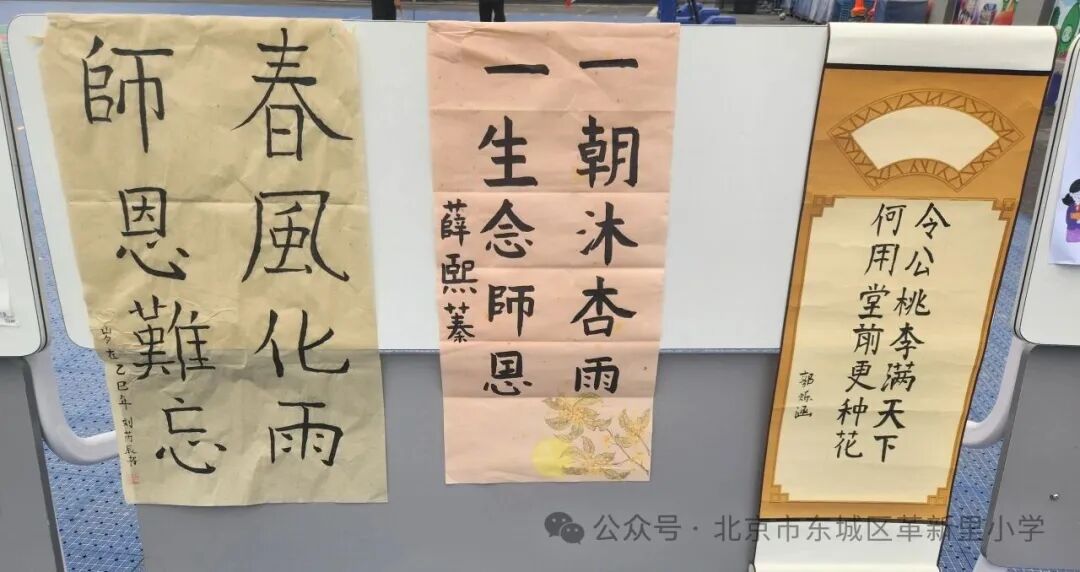 春風化雨
師恩難忘
岁在乙巳年
一朝沐杏雨
一生念師恩
薛熙蓁
令公桃李满天下
何用堂前更种花
公众号 · 北京市东城区革新里小学